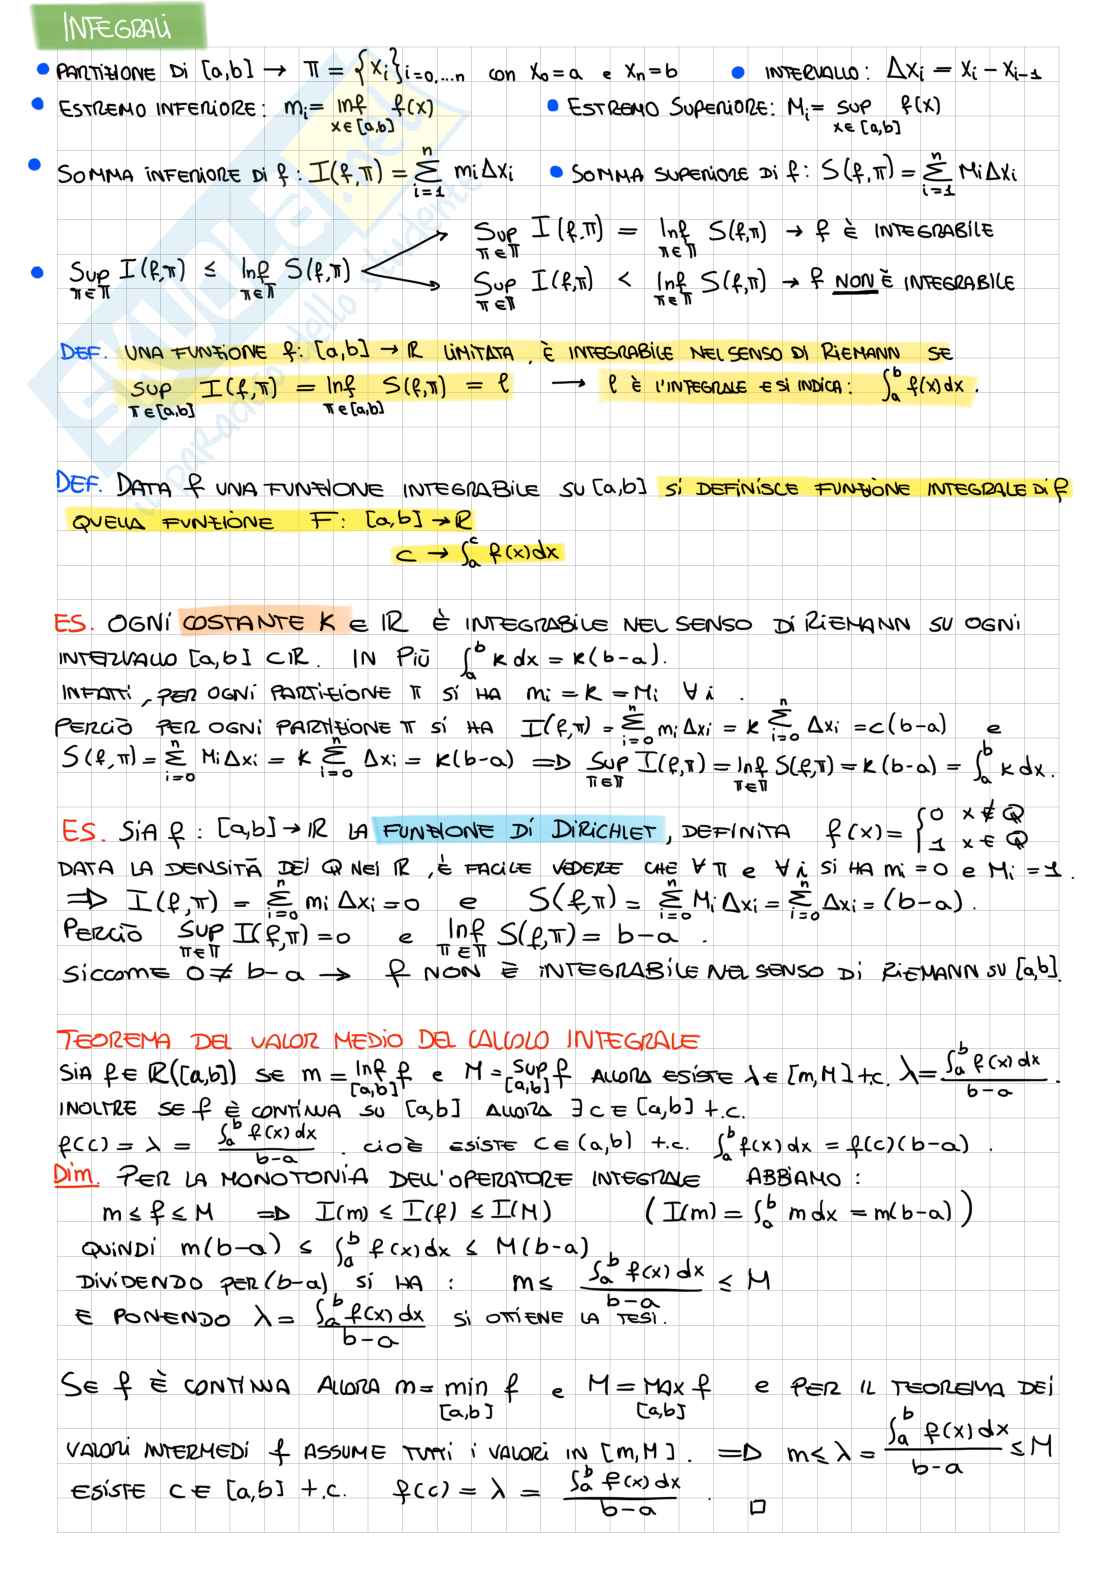 INTEGRALI
• PARTIZIONE DI [a,b] → π = {xᵢ}ᵢ₌₀,…ₙ con x₀=a e xₙ=b • INTERVALLO: Δxᵢ = xᵢ − xᵢ₋₁
• ESTREMO INFERIORE: mᵢ = Inf_{x∈[a,b]} f(x) • ESTREMO SUPERIORE: Mᵢ = sup_{x∈[a,b]} f(x)
• SOMMA INFERIORE DI f: I(f,π) = Σ_{i=1}^{n} mᵢΔxᵢ • SOMMA SUPERIORE DI f: S(f,π) = Σ_{i=1}^{n} MᵢΔxᵢ
Sup_{π∈Π} I(f,π) = Inf_{π∈Π} S(f,π) → f È INTEGRABILE
• Sup_{π∈Π} I(f,π) ≤ Inf_{π∈Π} S(f,π)
Sup_{π∈Π} I(f,π) < Inf_{π∈Π} S(f,π) → f NON È INTEGRABILE
DEF. UNA FUNZIONE f: [a,b] → ℝ LIMITATA, È INTEGRABILE NEL SENSO DI RIEMANN SE
Sup_{π∈[a,b]} I(f,π) = Inf_{π∈[a,b]} S(f,π) = ℓ → ℓ È L'INTEGRALE E SI INDICA: ∫_a^b f(x)dx.
DEF. DATA f UNA FUNZIONE INTEGRABILE SU [a,b] SI DEFINISCE FUNZIONE INTEGRALE DI f
QUELLA FUNZIONE F: [a,b] → ℝ
c → ∫_a^c f(x)dx
ES. OGNI COSTANTE K ∈ ℝ È INTEGRABILE NEL SENSO DI RIEMANN SU OGNI
INTERVALLO [a,b] ⊂ ℝ. IN PIÙ ∫_a^b k dx = k(b−a).
INFATTI, PER OGNI PARTIZIONE π SI HA mᵢ = k = Mᵢ ∀ i.
PERCIÒ PER OGNI PARTIZIONE π SI HA I(f,π) = Σ_{i=0}^{n} mᵢΔxᵢ = k Σ_{i=0}^{n} Δxᵢ = c(b−a) e
S(f,π) = Σ_{i=0}^{n} MᵢΔxᵢ = k Σ_{i=0}^{n} Δxᵢ = k(b−a) ⇒ Sup_{π∈Π} I(f,π) = Inf_{π∈Π} S(f,π) = k(b−a) = ∫_a^b k dx.
ES. SIA f: [a,b] → ℝ LA FUNZIONE DI DIRICHLET, DEFINITA f(x) = {0 x∉ℚ
1 x∈ℚ
DATA LA DENSITÀ DEI ℚ NEI ℝ, È FACILE VEDERE CHE ∀ π e ∀ i SI HA mᵢ = 0 e Mᵢ = 1.
⇒ I(f,π) = Σ_{i=0}^{n} mᵢΔxᵢ = 0 e S(f,π) = Σ_{i=0}^{n} MᵢΔxᵢ = Σ_{i=0}^{n} Δxᵢ = (b−a).
PERCIÒ Sup_{π∈Π} I(f,π) = 0 e Inf_{π∈Π} S(f,π) = b−a.
SICCOME 0 ≠ b−a → f NON È INTEGRABILE NEL SENSO DI RIEMANN SU [a,b].
TEOREMA DEL VALOR MEDIO DEL CALCOLO INTEGRALE
SIA f∈R([a,b]) SE m = Inf_{[a,b]} f e M = Sup_{[a,b]} f ALLORA ESISTE λ∈[m,M] t.c. λ = ∫_a^b f(x)dx / (b−a).
INOLTRE SE f È CONTINUA SU [a,b] ALLORA ∃ c∈[a,b] t.c.
f(c) = λ = ∫_a^b f(x)dx / (b−a). CIOÈ ESISTE c∈(a,b) t.c. ∫_a^b f(x)dx = f(c)(b−a).
Dim. PER LA MONOTONIA DELL'OPERATORE INTEGRALE ABBIAMO:
m ≤ f ≤ M ⇒ I(m) ≤ I(f) ≤ I(M) (I(m) = ∫_a^b m dx = m(b−a))
QUINDI m(b−a) ≤ ∫_a^b f(x)dx ≤ M(b−a)
DIVIDENDO PER (b−a) SI HA: m ≤ ∫_a^b f(x)dx / (b−a) ≤ M
E PONENDO λ = ∫_a^b f(x)dx / (b−a) SI OTTIENE LA TESI.
SE f È CONTINUA ALLORA m = min_{[a,b]} f e M = MAX_{[a,b]} f e PER IL TEOREMA DEI
VALORI INTERMEDI f ASSUME TUTTI I VALORI IN [m,M]. ⇒ m ≤ λ = ∫_a^b f(x)dx / (b−a) ≤ M
ESISTE c∈[a,b] t.c. f(c) = λ = ∫_a^b f(x)dx / (b−a). □